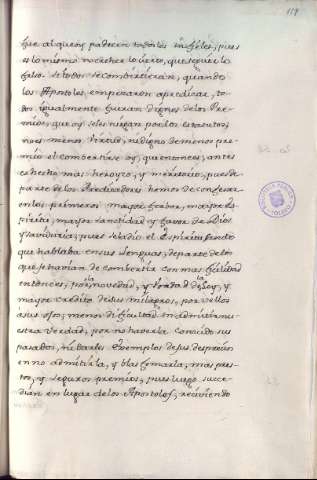 119
que alque os padecen todos los infieles, pues
es lo mismo no creher lo cierto, que seguir lo
falso. Si todos se combirtieran, quando
los Apostoles empezaron apredicar, to-
dos igualmente fueran dignos de los Pre-
mios, que oy se les niegan por los estatutos;
no es menos virtud, ni digno de menor pre-
mio el combertirse oy, que entonces; antes
es hecho mas heroyco, y meritorio, pues de
parte de los Predicadores hemos de confesar
en los primeros mayor fervor, mayor es-
piritu, mayor santidad y favor de Dios
y savíduria; pues se la dio el Espiritu santo
que hablaba en sus lenguas; de parte de los
que se havian de combertir con mas facilidad
entonces, por la novedad, y verdad de la Ley, y
mayor credito de sus milagros, por vellos
a sus ojos; menos dificultad en admitir nu-
estra verdad, por no haverla conocido sus
pasados, ni darles exemplos de sus desprecios
en no admitirla, y blasfemarla, mas pres-
to, y seguros premios, pues luego suce-
dian en lugar de los Apostoles, reciviendo